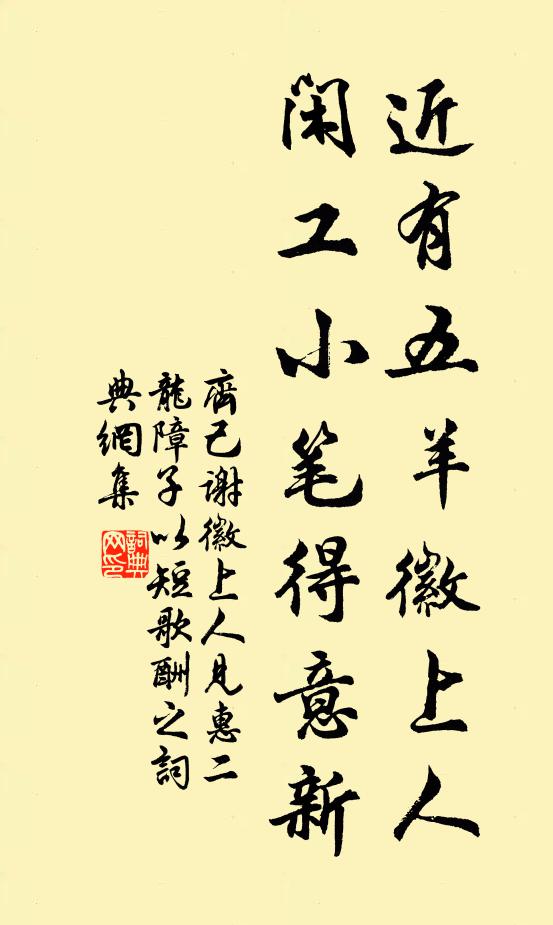 近有五羊徽上人
闲工小笔得意新
齊己谢徽上人見惠二
龍障子以短歌酬之詞
典網集
詞典
网印